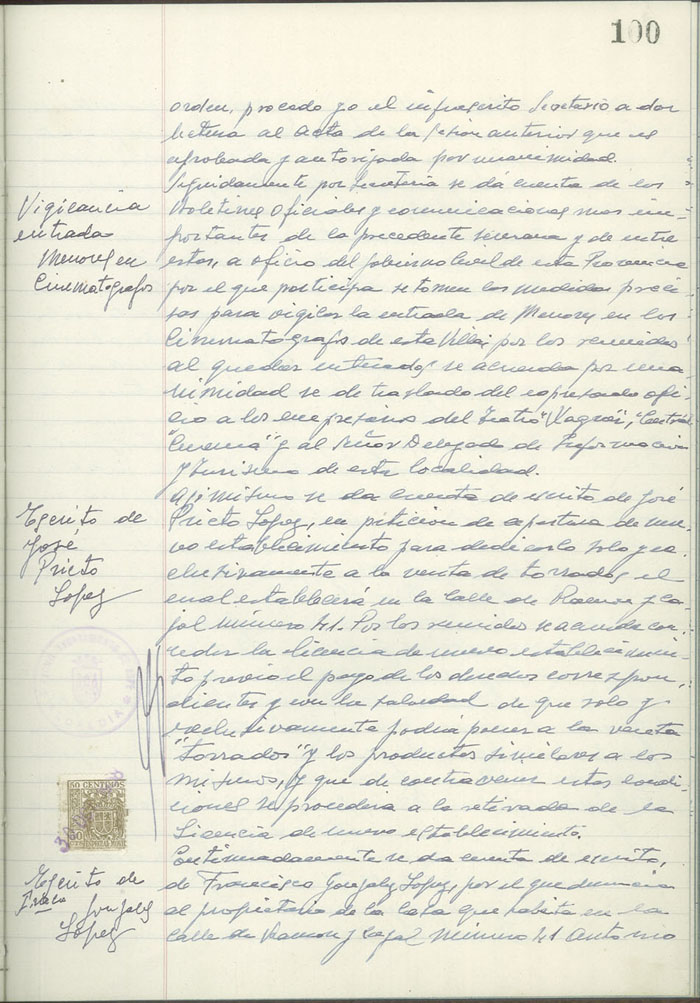 100
orden, procedo yo el infrascrito Secretario a dar
lectura al Acta de la sesion anterior que es
aprobada y autorizada por unanimidad.
Seguidamente por Secretaria se dá cuenta de los
Vigilancia
entrada
Menores en
Cinematografos
Boletines Oficiales y comunicaciones mas im-
portantes de la precedente semana y de entre
estos, a oficio del Gobierno Civil de esta Provincia
por el que participa se tomen las medidas preci-
sas para vigilar la entrada de Menores en los
Cinematografos de esta Villa; por los reunidos
al quedar enterados se acuerda por una-
nimidad se de traslado del expresado ofi-
cio a los empresarios del Teatro "Wagner", "Central
Cinema" y al Señor Delegado de Información
y Turismo de esta localidad.
Asimismo se da cuenta de escrito de José
Escrito de
José
Prieto
Lopez
Prieto Lopez, en petición de apertura de nue-
vo establecimiento para dedicarlo solo y ex-
clusivamente a la venta de torrados, el
cual establecerá en la Calle de Ramon y Ca-
jal número 41. Por los reunidos se acuerda con-
ceder la licencia de nuevo establecimien-
to previo el pago de los derechos correspon-
dientes y con la salvedad de que solo y
exclusivamente podrá poner a la venta
"torrados" y los productos similares a los
mismos, y que de contravenir estas condi-
ciones se procederá a la retirada de la
Licencia de nuevo establecimiento.
50 CENTIMOS
50
CTS ESPECIAL MOVIL
Continuadamente se da cuenta de escrito,
Escrito de
Frsco
Gonzalez
López
de Francisco Gonzalez Lopez, por el que denuncia
al propietario de la Casa que habita en la
calle de Ramon y Cajal número 41 Antonio